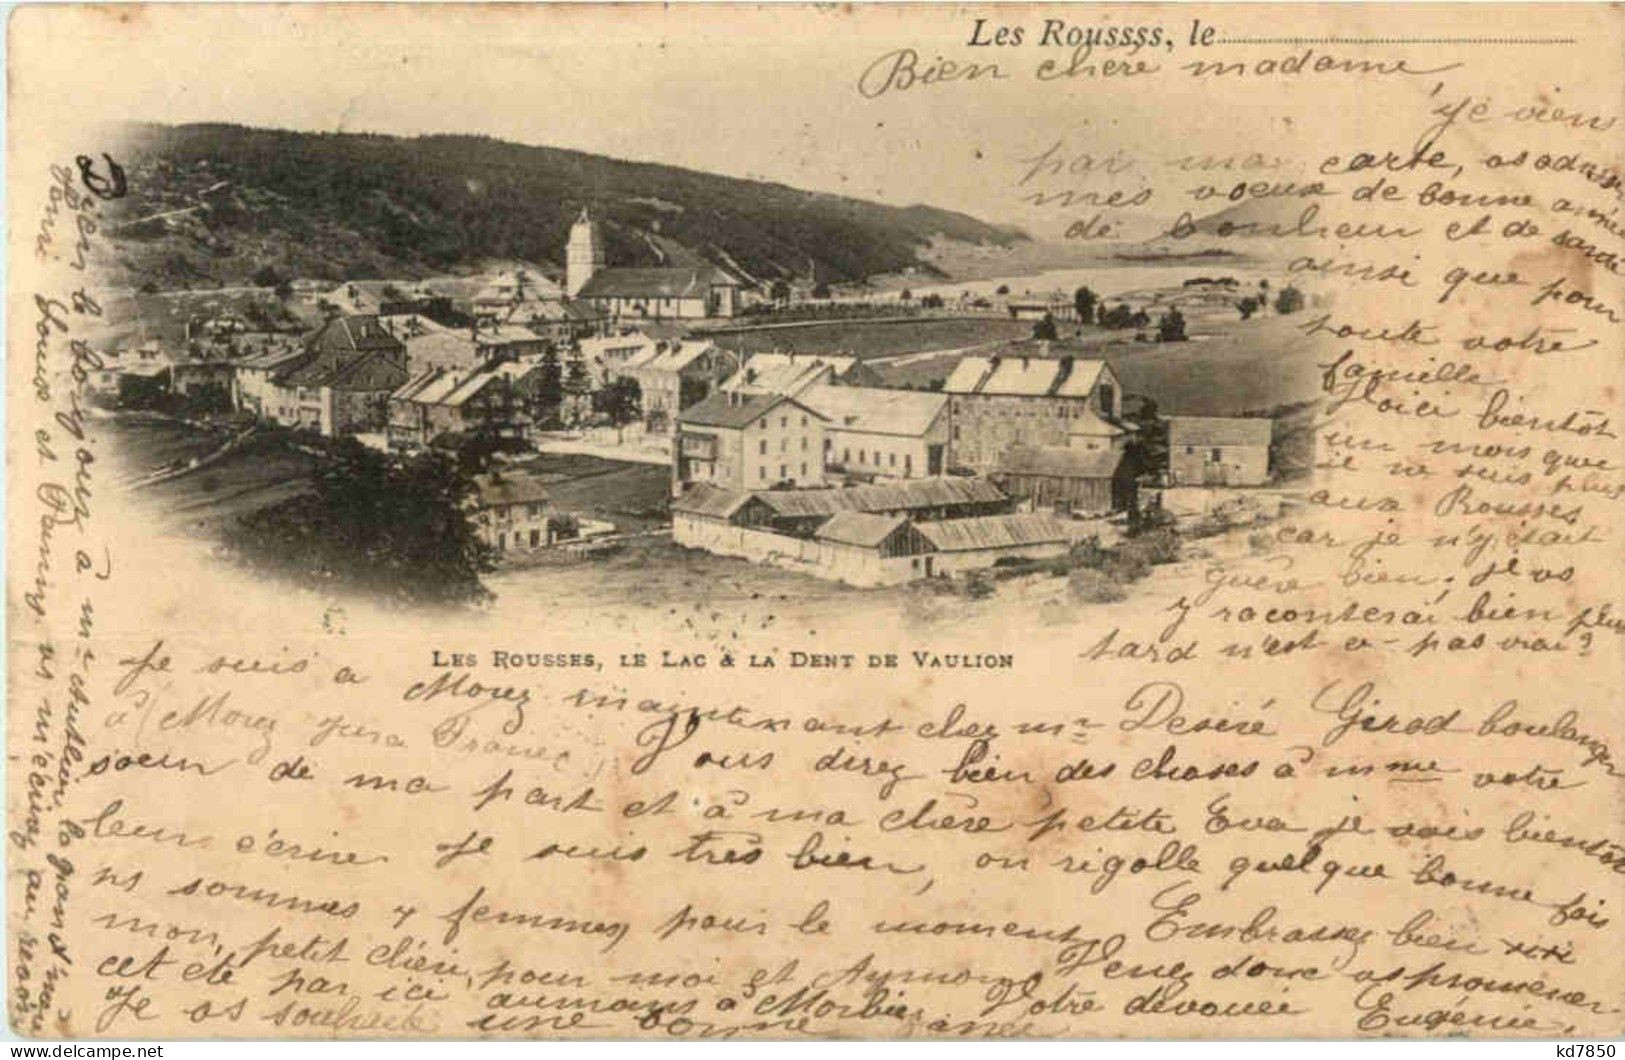 Les Roussss, le
Bien chère madame
Je viens
par ma carte, vs adresser
mes voeux de bonne année
de bonheur et de santé
ainsi que pour
toute votre
famille
Voici bientôt
un mois que
je ne suis plus
aux Rousses
car je n'y était
guère bien, je vs
y raconterai bien plus
tard n'est ce pas vrai?
LES ROUSSES, LE LAC & LA DENT DE VAULION
Je suis a Morez maintenant chez mr Desiré Girod boulanger
à (Morez Jura France) Vous direz bien des choses à mme votre
soeur de ma part et à ma chère petite Eva je vais bientôt
leur écrire. Je suis très bien, on rigolle quelque bonne fois
ns sommes 4 femmes pour le moment, Embrassez bien
mon petit chien, pour moi et Aymon Venez donc vs promener
cet été par ici aumoins à Morbier Votre dévouée Eugénie.
Je vs souhaite une bonne année
Bien le bonjour à
Louis et
ns m'écrirez au revoir
kd7850